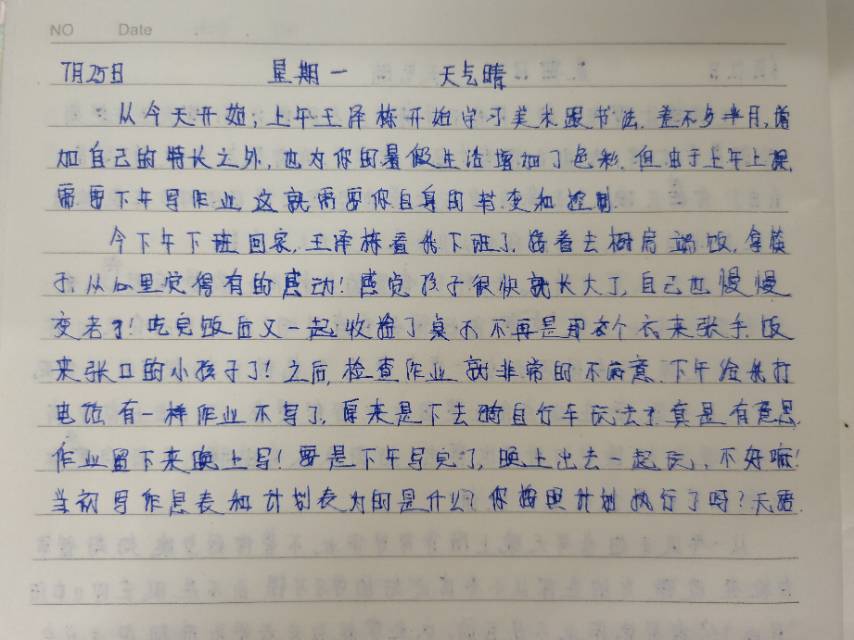 NO Date
7月25日 星期一 天气晴
从今天开始,上午王泽栋开始学习美术跟书法.差不多半月,增
加自己的特长之外,也为你的暑假生活增加了色彩.但由于上午上课,
需要下午写作业,这就需要你自身的转变和控制.
今下午下班回家,王泽栋看我下班了,接着去橱房端饭,拿筷
子,从心里觉得有的感动!感觉孩子很快就长大了,自己也慢慢
变老了!吃完饭后又一起收捡了桌子,不再是那个衣来张手,饭
来张口的小孩子了!之后,检查作业就非常的不满意.下午给我打
电话有一样作业不写了,原来是下去骑自行车玩去了,真是有意思,
作业留下来晚上写!要是下午写完了,晚上出去一起玩,不好嘛!
当初写作息表和计划表为的是什么?你按照计划执行了吗?无语.